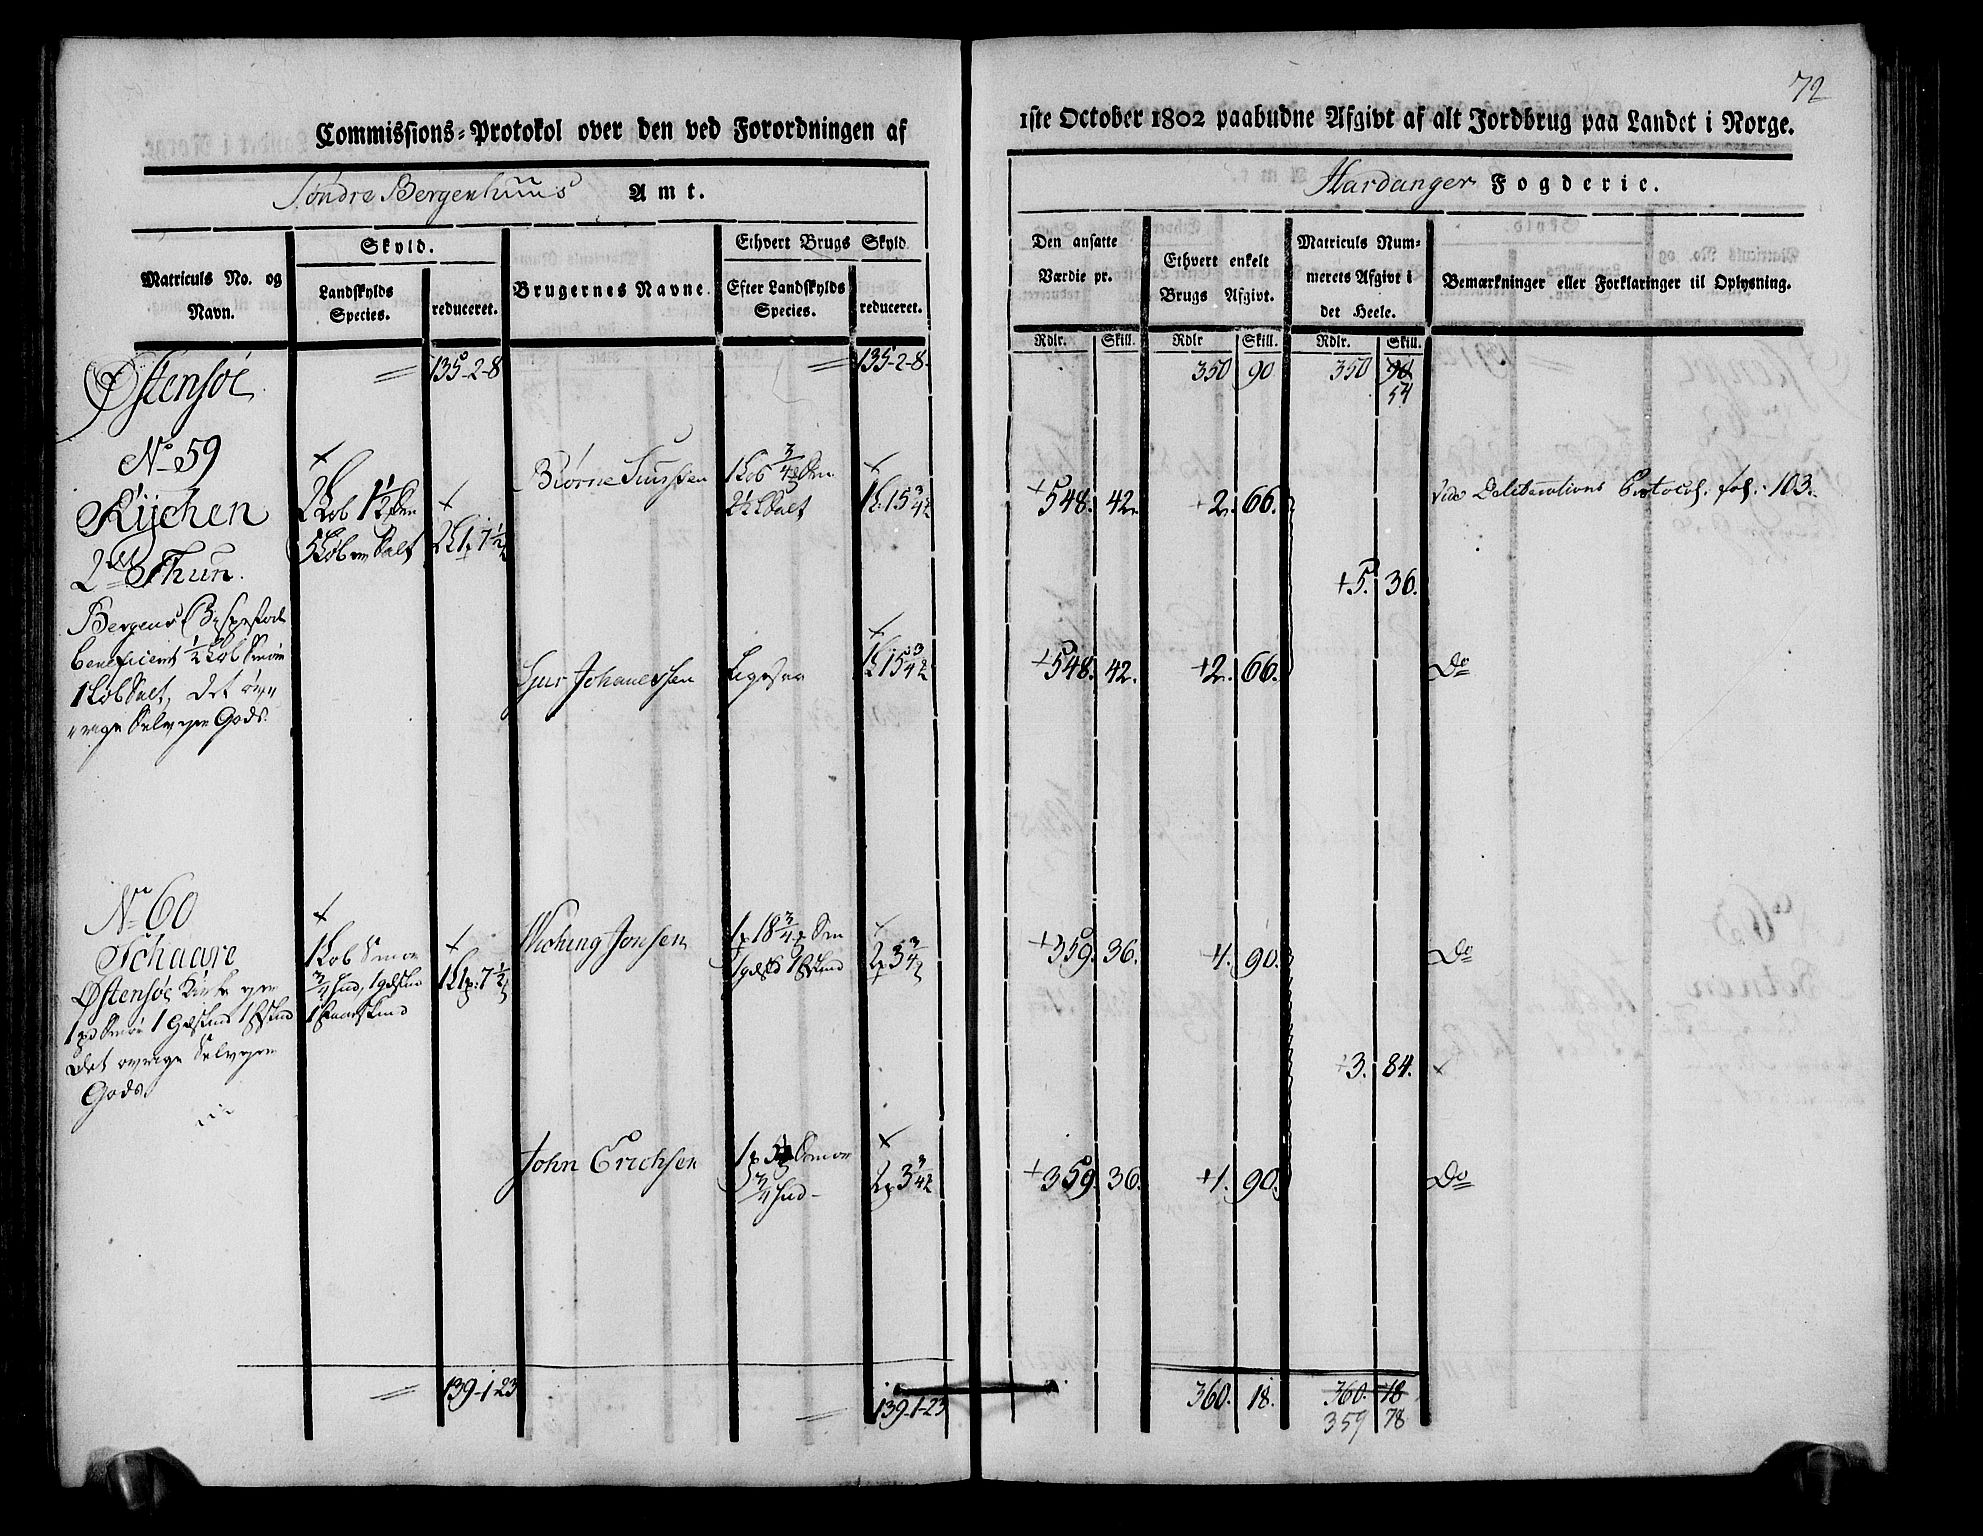 72
Commissions-Protokol over den ved Forordningen af
1ste October 1802 paabudne Afgivt af alt Jordbrug paa Landet i Norge.
Søndre Bergenhuus Amt.
Hardanger Fogderie.
Matriculs No. og Navn.
Skyld.
Landskylds Species.
reduceret.
Brugernes Navne.
Ethvert Brugs Skyld.
Efter Landskylds Species.
reduceret.
Den ansatte Værdie pr.
Ethvert enkelt Brugs Afgivt.
Matriculs Nummerets Afgivt i det Heele.
Bemærkninger eller Forklaringer til Oplysning.
Rdlr. Skill. Rdlr Skill. Rdlr. Skill.
Østensøe
135-2-8 135-2-8
350 90 350 90
54
No 59
Kijchen
2 Løb 1½
2 1 7½
Biørne
1 Løb ¾
2½ Salt
1 15¾
+548. 42. +2. 66.
Vide Deliberations Protocol. fol: 103.
2 Thun.
+5. 36.
Bergens
beneficeret ½ Løb Smør
1 Løb Salt, Det øv-
rige Selveyer Gods.
Johannessen
Ligesaa
1 15¾
+548. 42. +2. 66.
Do
No 60
Schaare
Østensøe Kirke
1 Smør 1 Gedskind 1
Det øvrige Selveyer
Gods.
1 Løb Smør
¾ Hud, 1
1 1 7½
Jonsen
1 18¾
2 3¾
+359. 36. 1. 90.
Do
+3. 84.
John Erichsen
¾ Hud
2 3¾
+359. 36. +1. 90.
Do
139-1-23
139-1-23
360. 18. 360. 18
359 78